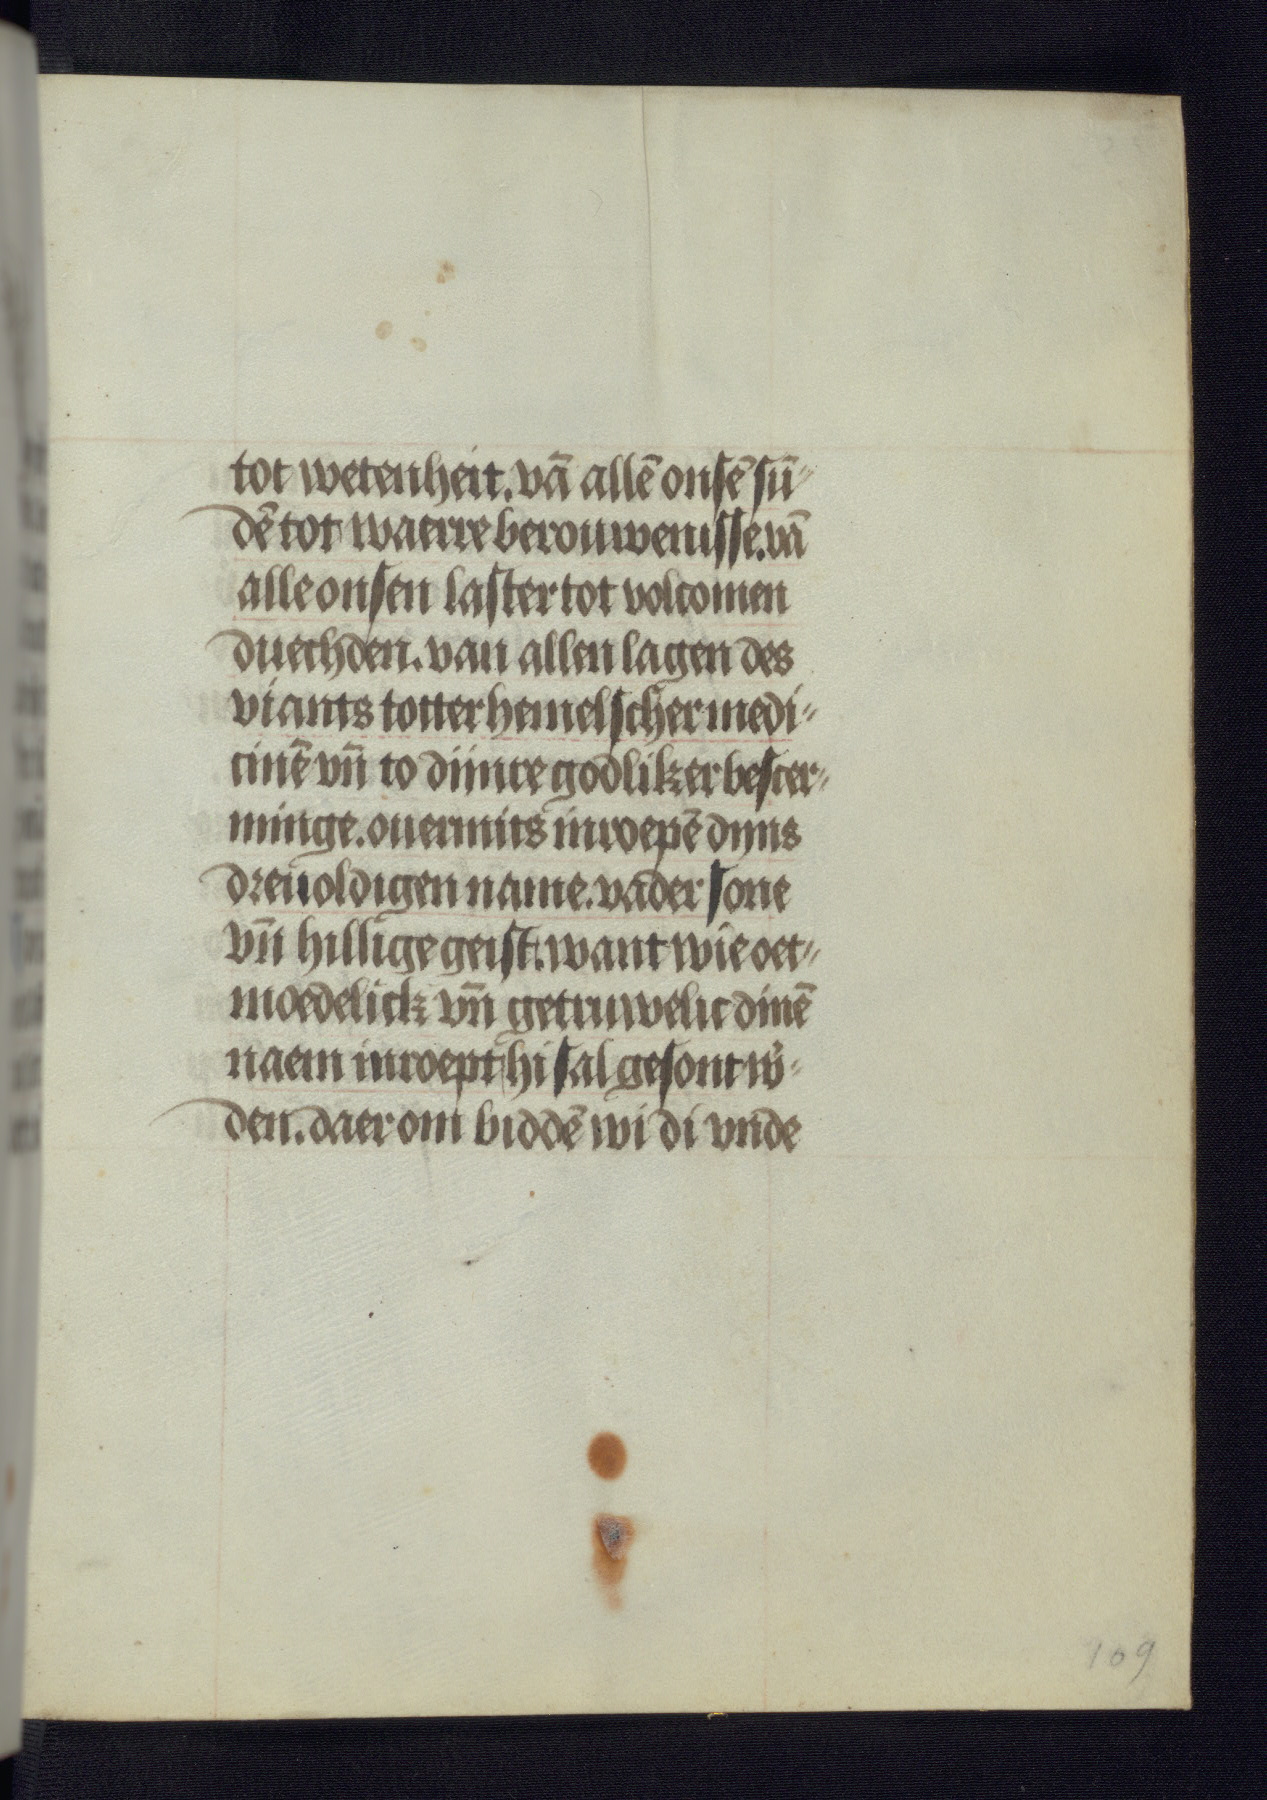 tot wetenheit. vā allē onsē sū⸗
dē tot waerre berouwenisse. vā
alle onsen laster tot volcomen
duechden. van allen lagen des
viants totter hemelscher medi⸗
cinē vn̄ to diinre godliker bescer⸗
minge. ouermits inroepē dyns
dreuoldigen name. vader sone
vn̄ hillige geist. want wie oet⸗
moedelick vn̄ getruwelic dinē
naem inroept hi sal gesont w̉⸗
den. daer om biddē wi di vnde
109